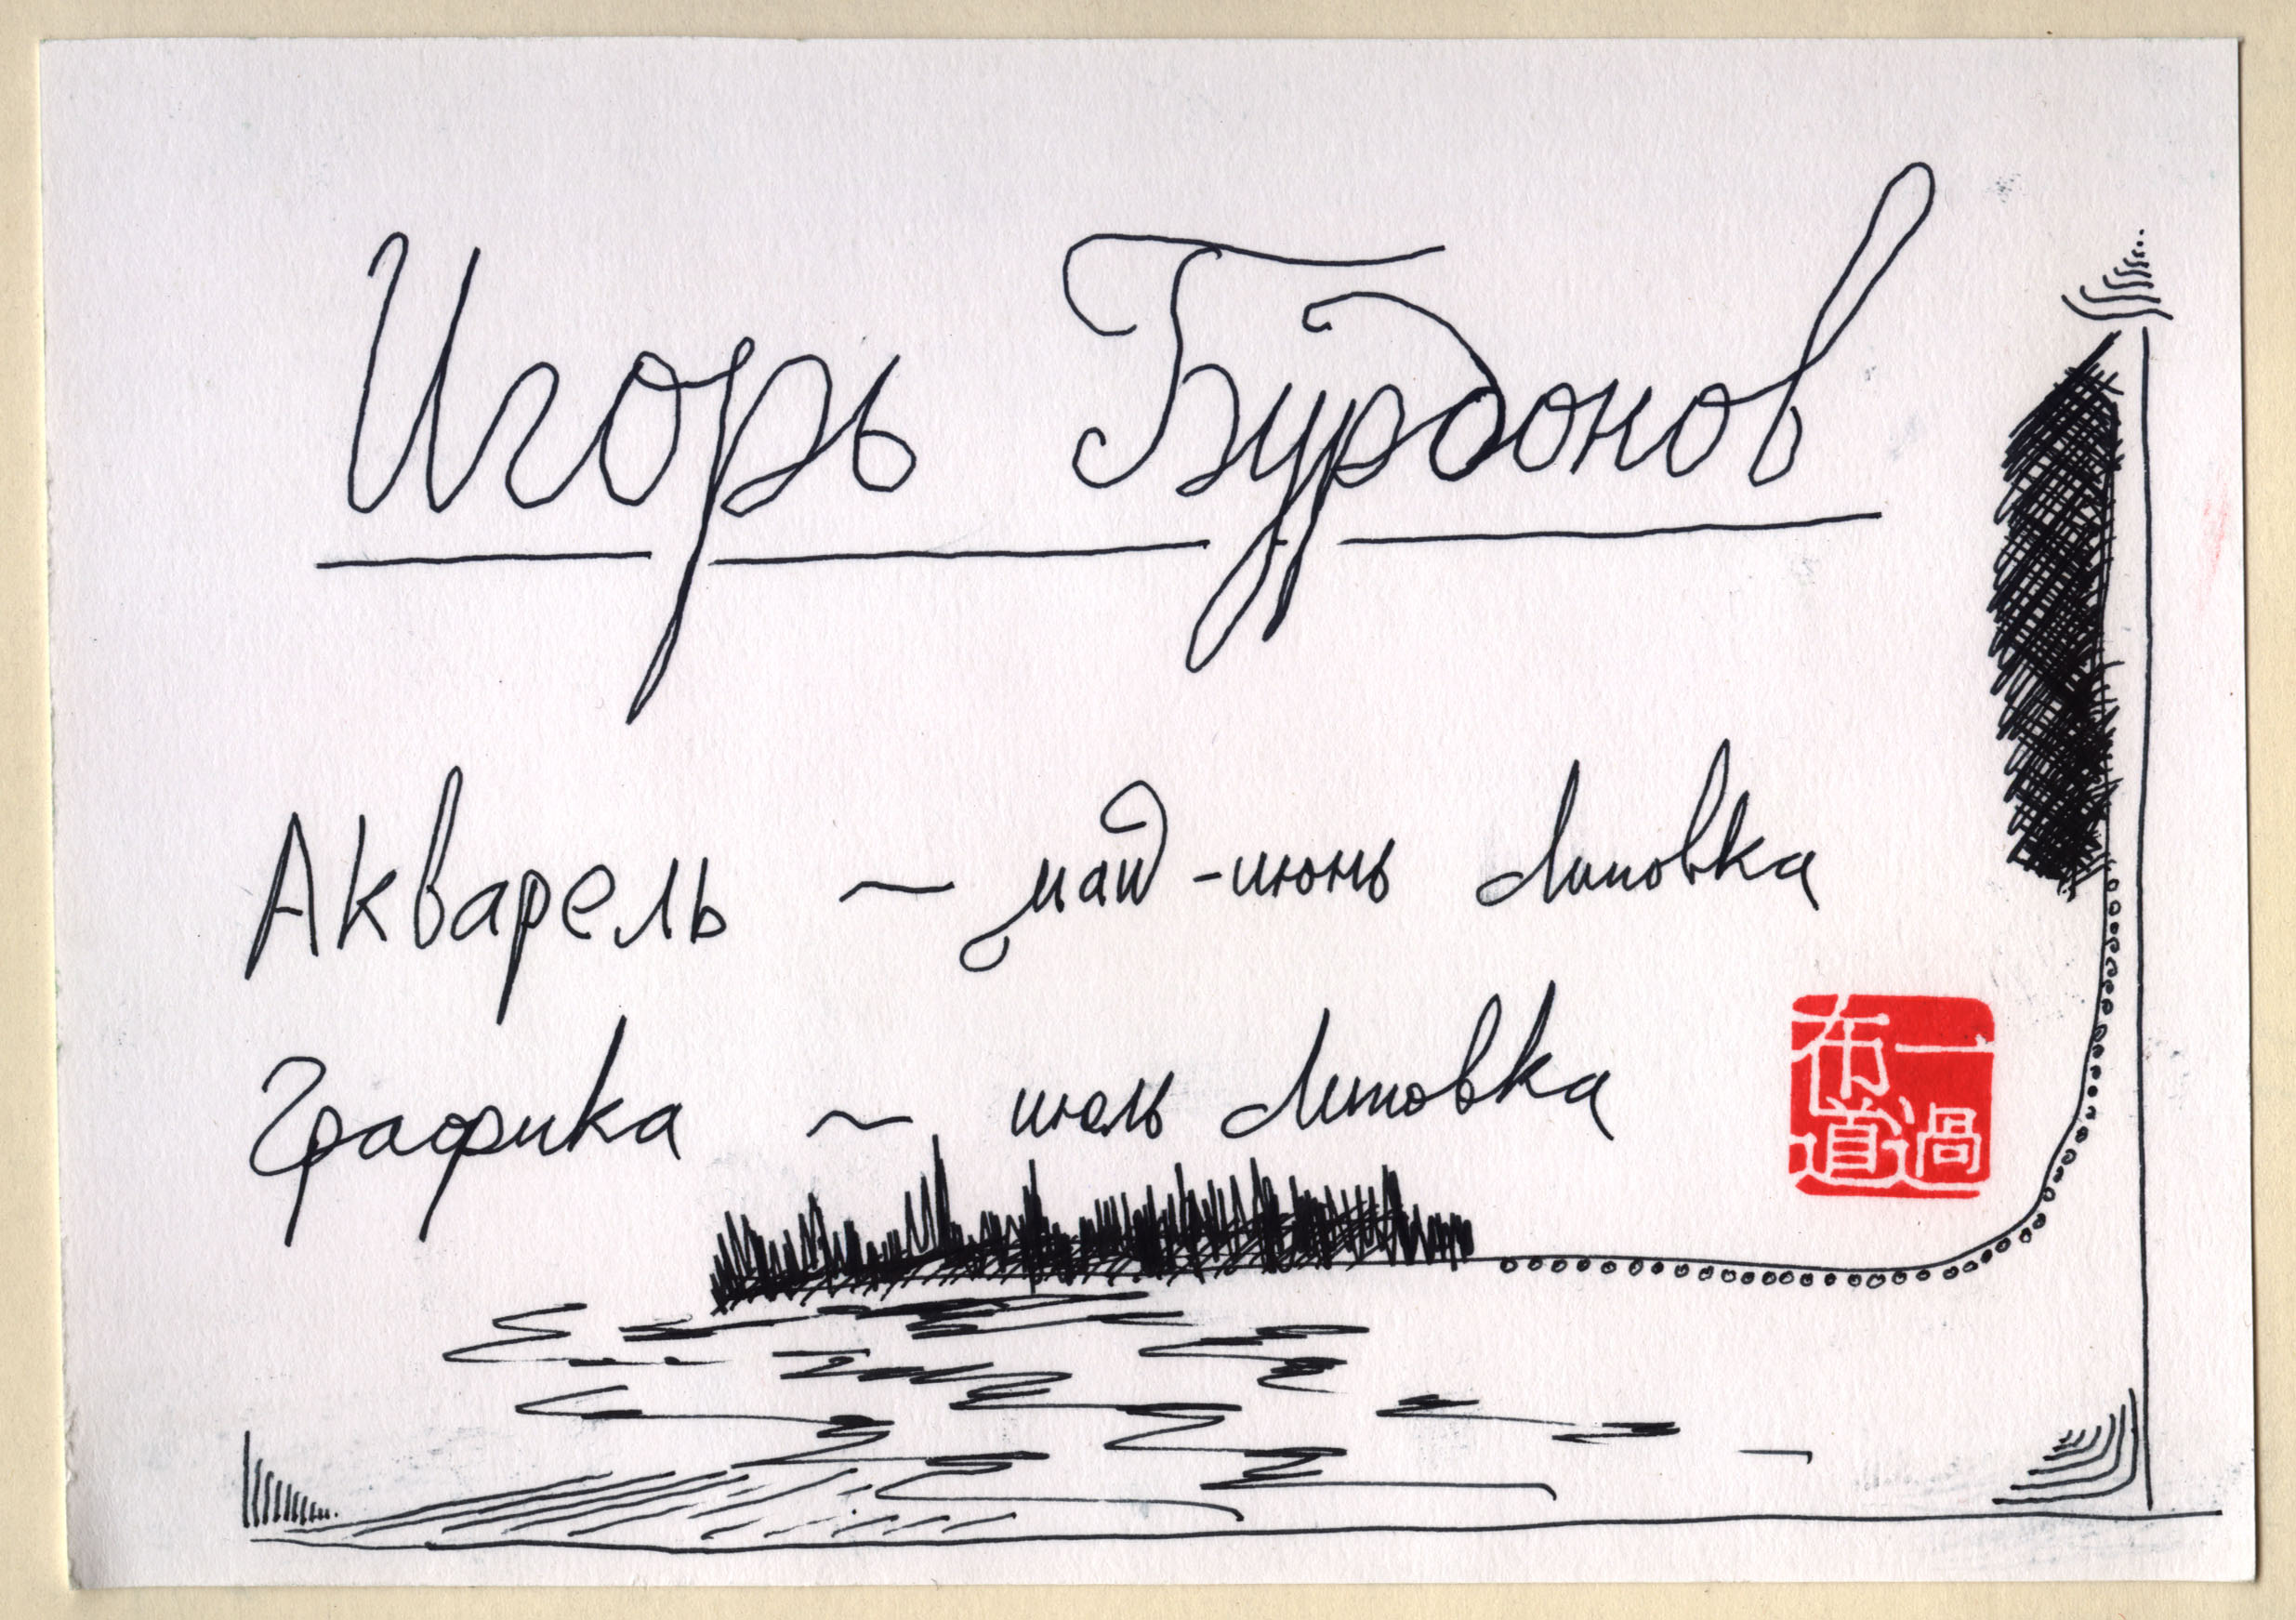 Игорь Бурдонов
Акварель ~ май - июнь Липовка
Графика ~ июль Липовка
一過
布道